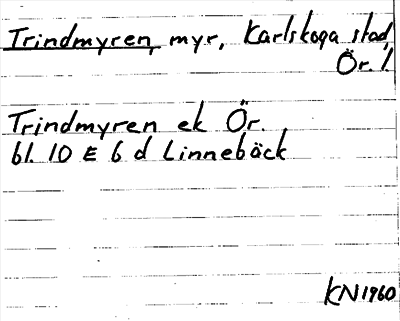 Trindmyren, myr, Karlskoga stad,
Ör. l.
Trindmyren ek Ör.
bl. 10 E 6 d Linnebäck
KN1960